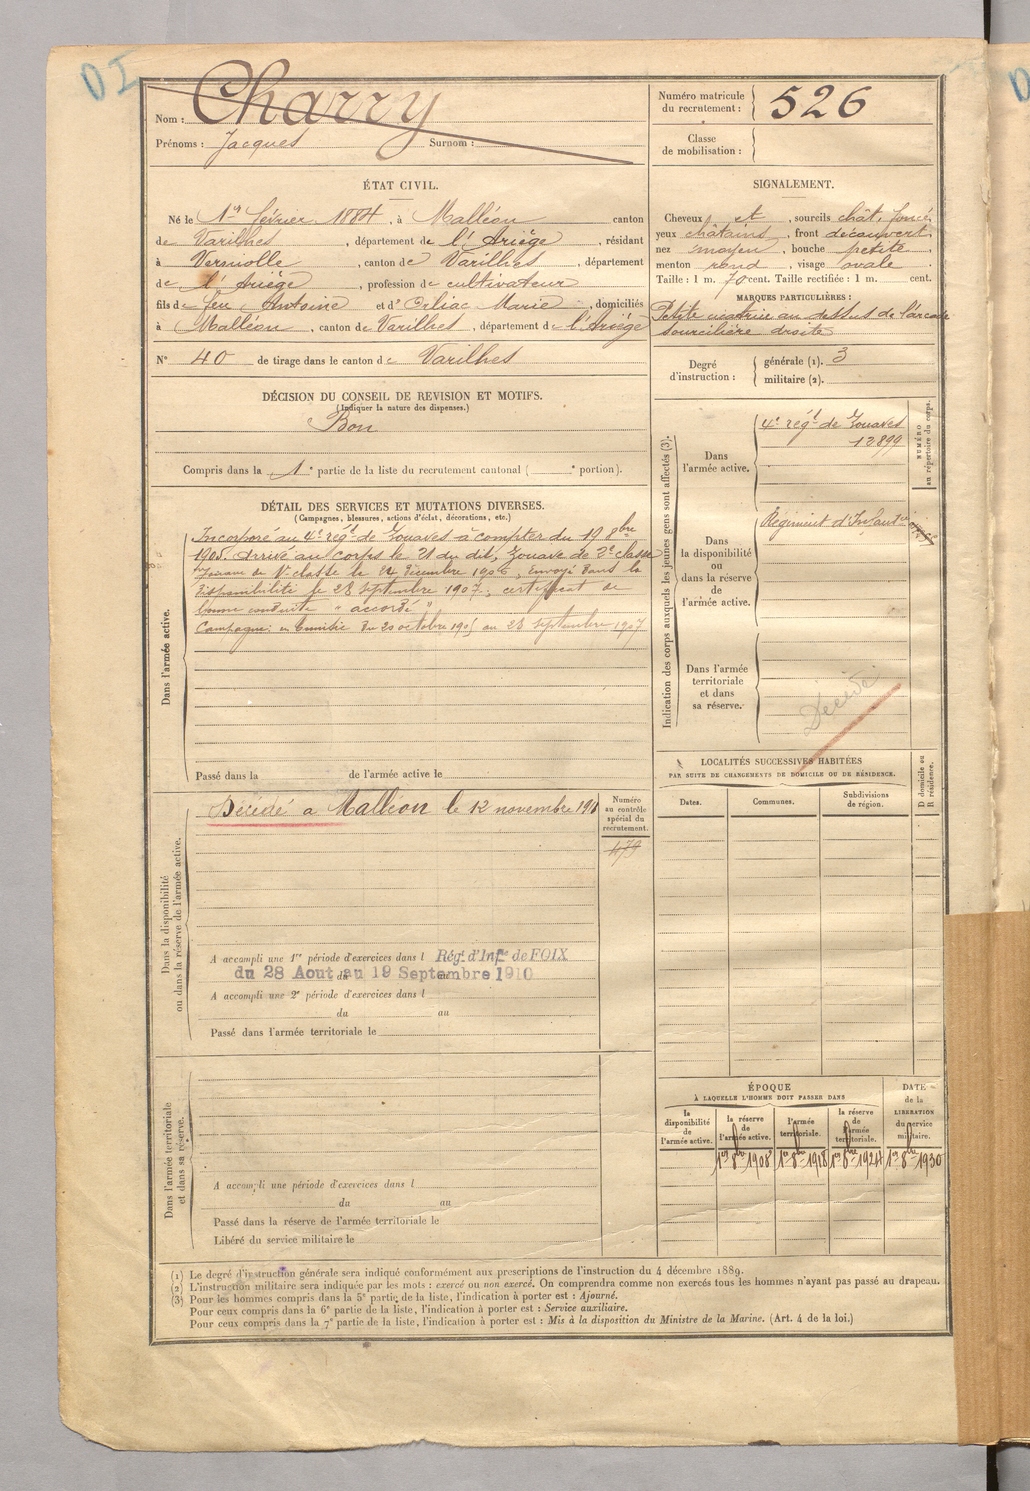 DI
Nom : Charry
Prénoms : Jacques Surnom :
ÉTAT CIVIL.
Né le 1er février 1884, à Malléon canton
de Varilhes, département de l'Ariège, résidant
à Verniolle, canton de Varilhes, département
de l'Ariège, profession de cultivateur
fils de feu Antoine et d' Orliac Marie, domiciliés
à Malléon, canton de Varilhes, département de l'Ariège
N° 40 de tirage dans le canton de Varilhes
DÉCISION DU CONSEIL DE REVISION ET MOTIFS.
(Indiquer la nature des dispenses.)
Bon
Compris dans la 1e partie de la liste du recrutement cantonal ( e portion).
DÉTAIL DES SERVICES ET MUTATIONS DIVERSES.
(Campagnes, blessures, actions d'éclat, décorations, etc.)
Dans l'armée active.
Incorporé au 4e régt de Zouaves a compter du 19 8bre
1905. Arrivé au corps le 21 du dit, Zouave de 2e classe
Zouave de 1e classe le 24 décembre 1906, envoyé dans la
disponibilité le 28 septembre 1907, certificat de
bonne conduite " accordé "
Campagne: en Tunisie du 20 octobre 1905 au 23 septembre 1907
Passé dans la de l'armée active le
Dans la disponibilité
ou dans la réserve de l'armée active.
Décédé a Malléon le 12 novembre 191
Numéro
au contrôle
spécial du
recrutement.
479
A accompli une 1re période d'exercices dans l Régt d'Infie de FOIX
du 28 Aout au 19 Septembre 1910
A accompli une 2e période d'exercices dans l
du au
Passé dans l'armée territoriale le
Dans l'armée territoriale
et dans sa réserve.
A accompli une période d'exercices dans l
du au
Passé dans la réserve de l'armée territoriale le
Libéré du service militaire le
Numéro matricule
du recrutement : 526
Classe
de mobilisation :
SIGNALEMENT.
Cheveux et, sourcils chât. foncé,
yeux châtains, front découvert,
nez moyen, bouche petite,
menton rond, visage ovale
Taille : 1 m. 70 cent. Taille rectifiée : 1 m. cent.
MARQUES PARTICULIÈRES :
Petite cicatrice au dessus de l'arcade
sourcilière droite
Degré
d'instruction :
générale (1). 3
militaire (2).
Indication des corps auxquels les jeunes gens sont affectés (3).
NUMÉRO
au répertoire du corps.
Dans
l'armée active.
4e régt de Zouaves
12899
Dans
la disponibilité
ou
dans la réserve
de
l'armée active.
Régiment d'Infanterie
Dans l'armée
territoriale
et dans
sa réserve.
Décédé
LOCALITÉS SUCCESSIVES HABITÉES
PAR SUITE DE CHANGEMENTS DE DOMICILE OU DE RÉSIDENCE.
Dates.
Communes.
Subdivisions
de région.
D domicile ou
R résidence.
ÉPOQUE
À LAQUELLE L'HOMME DOIT PASSER DANS
DATE
de la
LIBÉRATION
du service
militaire.
la
disponibilité
de
l'armée active.
la réserve
de
l'armée active.
l'armée
territoriale.
la réserve
de
l'armée
territoriale.
1er 8bre 1908 1er 8bre 1918 1er 8bre 1924 1er 8bre 1930
(1) Le degré d'instruction générale sera indiqué conformément aux prescriptions de l'instruction du 4 décembre 1889.
(2) L'instruction militaire sera indiquée par les mots : exercé ou non exercé. On comprendra comme non exercés tous les hommes n'ayant pas passé au drapeau.
(3) Pour les hommes compris dans la 5e partie de la liste, l'indication à porter est : Ajourné.
Pour ceux compris dans la 6e partie de la liste, l'indication à porter est : Service auxiliaire.
Pour ceux compris dans la 7e partie de la liste, l'indication à porter est : Mis à la disposition du Ministre de la Marine. (Art. 4 de la loi.)